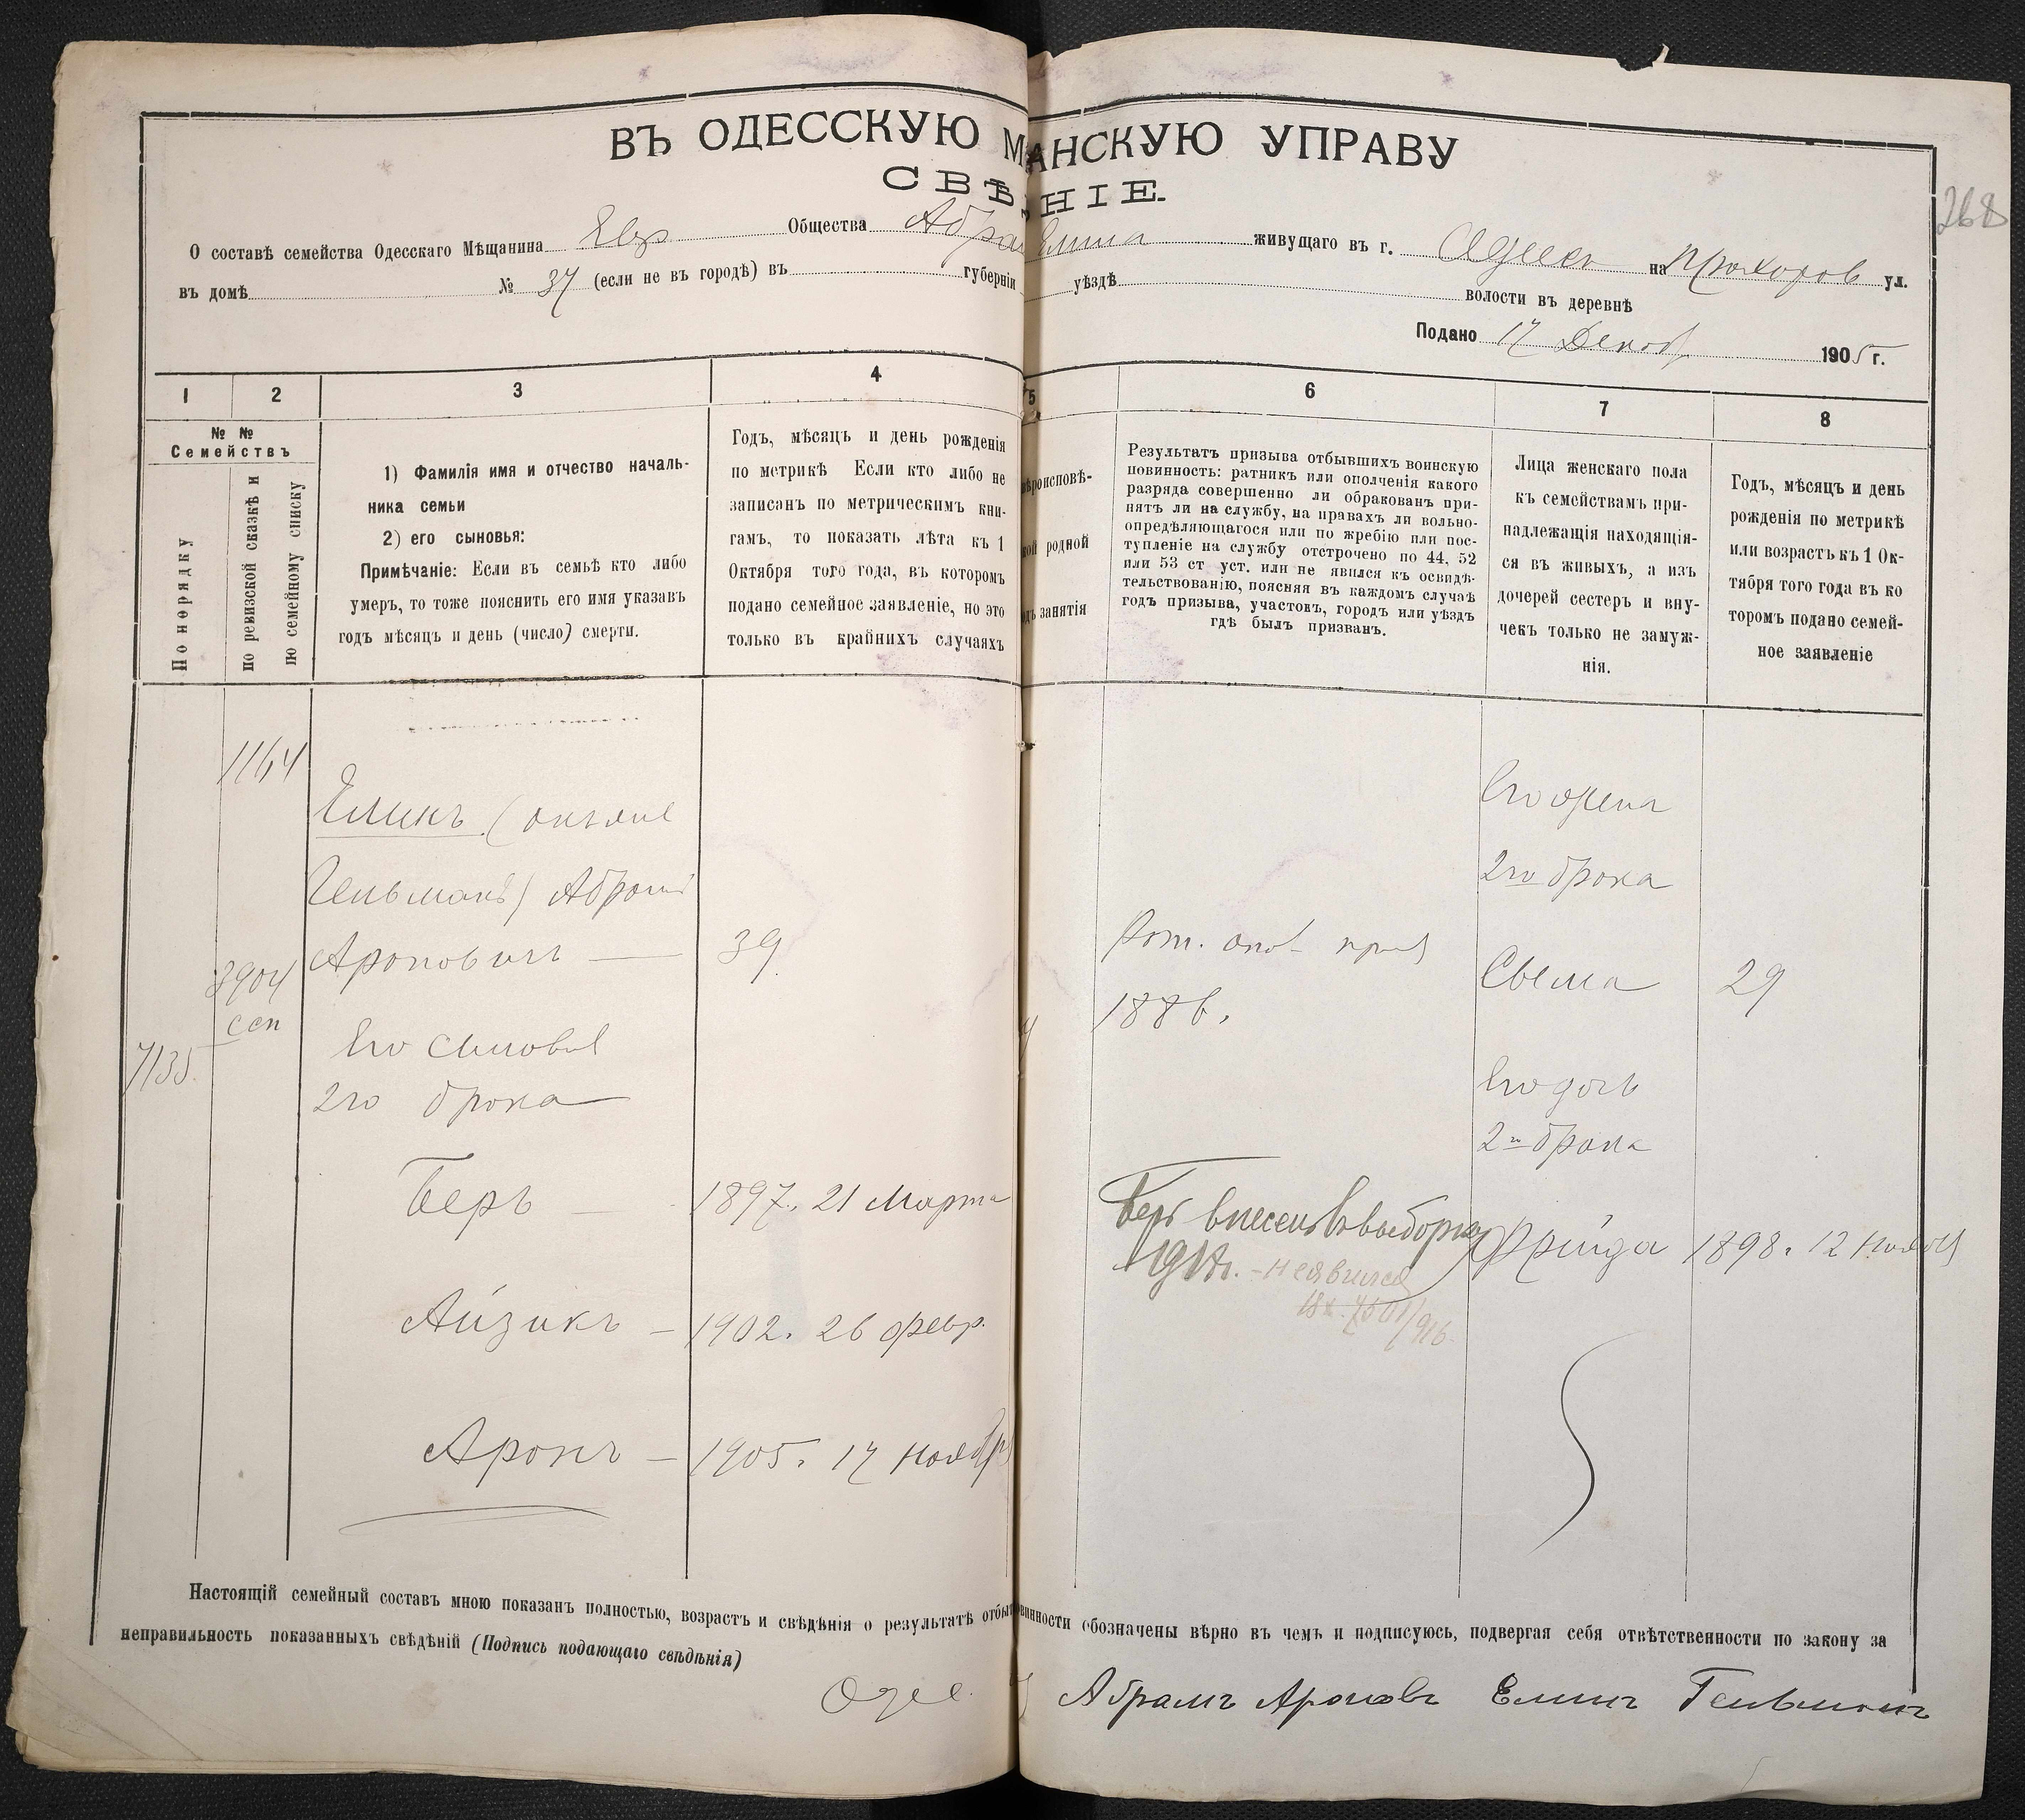 ВЪ ОДЕССКУЮ М АНСКУЮ УПРАВУ
СВѢ НІЕ.
268
О составѣ семейства Одесскаго Мѣщанина Евр Общества Абрам Елина живущаго въ г. Одессѣ на Прохоров ул.
въ домѣ № 37 (если не въ городѣ) въ губерніи уѣздѣ волости въ деревнѣ
Подано 17 Декаб 1905 г.
1 2 3 4 5 6 7 8
№ №
Семействъ
По порядку
по ревизской сказкѣ и
по семейному списку
1) Фамилія имя и отчество началь-
ника семьи
2) его сыновья:
Примѣчаніе: Если въ семьѣ кто либо
умеръ, то тоже пояснить его имя указавъ
годъ мѣсяцъ и день (число) смерти.
Годъ, мѣсяцъ и день рожденія
по метрикѣ Если кто либо не
записанъ по метрическимъ кни-
гамъ, то показать лѣта къ 1
Октября того года, въ которомъ
подано семейное заявленіе, но это
только въ крайнихъ случаяхъ
ѣроисповѣ-
кой родной
одъ занятія
Результатъ призыва отбывшихъ воинскую
повинность: ратникъ или ополченія какого
разряда совершенно ли обракованъ при-
нятъ ли на службу, на правахъ ли вольно-
опредѣляющагося или по жребію или пос-
тупленіе на службу отстрочено по 44, 52
или 53 ст уст. или не явился къ освидѣ-
тельствованію, поясняя въ каждомъ случаѣ
годъ призыва, участокъ, городъ или уѣздъ
гдѣ былъ призванъ.
Лица женскаго пола
къ семействамъ при-
надлежащія находящія-
ся въ живыхъ, а изъ
дочерей сестеръ и вну-
чекъ только не замуж-
нія.
Годъ, мѣсяцъ и день
рожденія по метрикѣ
или возрастъ къ 1 Ок-
тября того года въ ко
торомъ подано семей-
ное заявленіе
1164
Елинъ (онъ же
Гельманъ) Абрамъ
Ароновичъ — 39
3904
ссп
7135
Его сыновья
2го брака
Беръ — 1897. 21 Марта
Айзикъ — 1902. 26 февр.
Аронъ — 1905. 17 Ноябр
Рат. опол. приз
1886.
Беръ внесенъ въ выборку
191 г. - неявился
Его жена
2го брака
Свема 29
Его дочь
2го брака
Фрейда 1898. 12 Ноября
Настоящій семейный составъ мною показанъ полностью, возрастъ и свѣдѣнія о результатѣ отбы винности обозначены вѣрно въ чемъ и подписуюсь, подвергая себя отвѣтственности по закону за
неправильность показанныхъ свѣдѣній (Подпись подающаго свѣдѣнія)
Одес. Абрамъ Ароновъ Елинъ Гельманъ